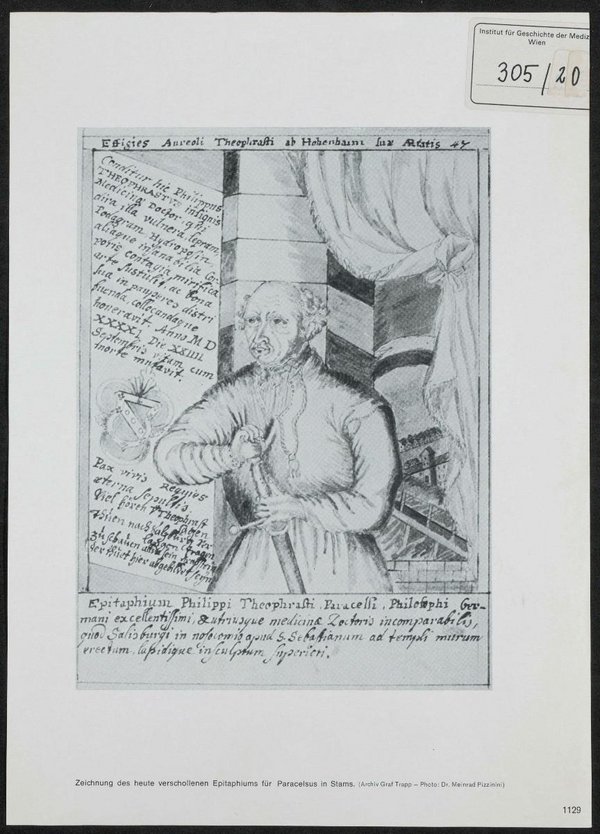 Institut für Geschichte der Mediz
Wien
305/20
Effigies Aureoli Theophrasti ab Hohenhaim suæ Ætatis 47
Conditur hic Philippus
THEOPHRASTVS insignis
Medicinæ Doctor qui
dira illa vulnera lepram
Podagram Hydropisin
aliaque insanabilia Cor
poris contagia mirifica
arte sustulit ac bona
sua in pauperes distri
buenda collocandaque
honeravit Anno M D
XXXXI Die XXIIII
Septembris vitam cum
morte mutavit.
Pax vivis Requies
æterna sepultis
Viel hören Theophrast
thuen nach
Epitaphium Philippi Theophrasti Paracelsi, Philosophi Ger-
mani excellentissimi, & utriusque medicinæ Doctoris incomparabilis,
quod Salisburgi in nosocomio apud S. Sebastianum ad templi murum
erectum, lapidique insculptum superieri.
Zeichnung des heute verschollenen Epitaphiums für Paracelsus in Stams. (Archiv Graf Trapp – Photo: Dr. Meinrad Pizzinini)
1129